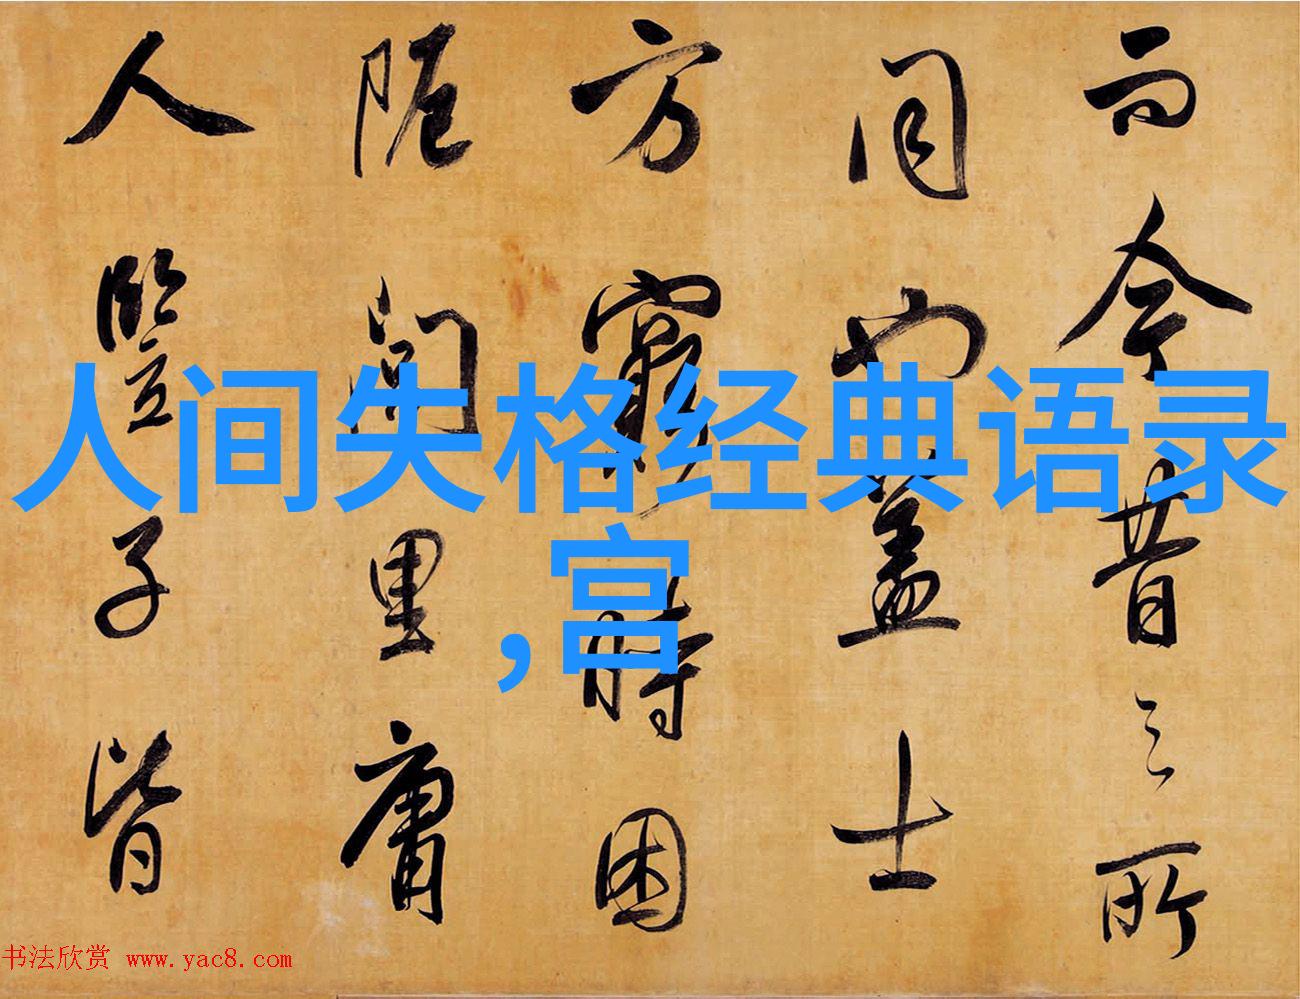 人间失格经典语录
,宫
而今昔之所
同也盖士
方窮時困
阨閭里庸
人豎子皆
书法欣赏 www.yac8.com